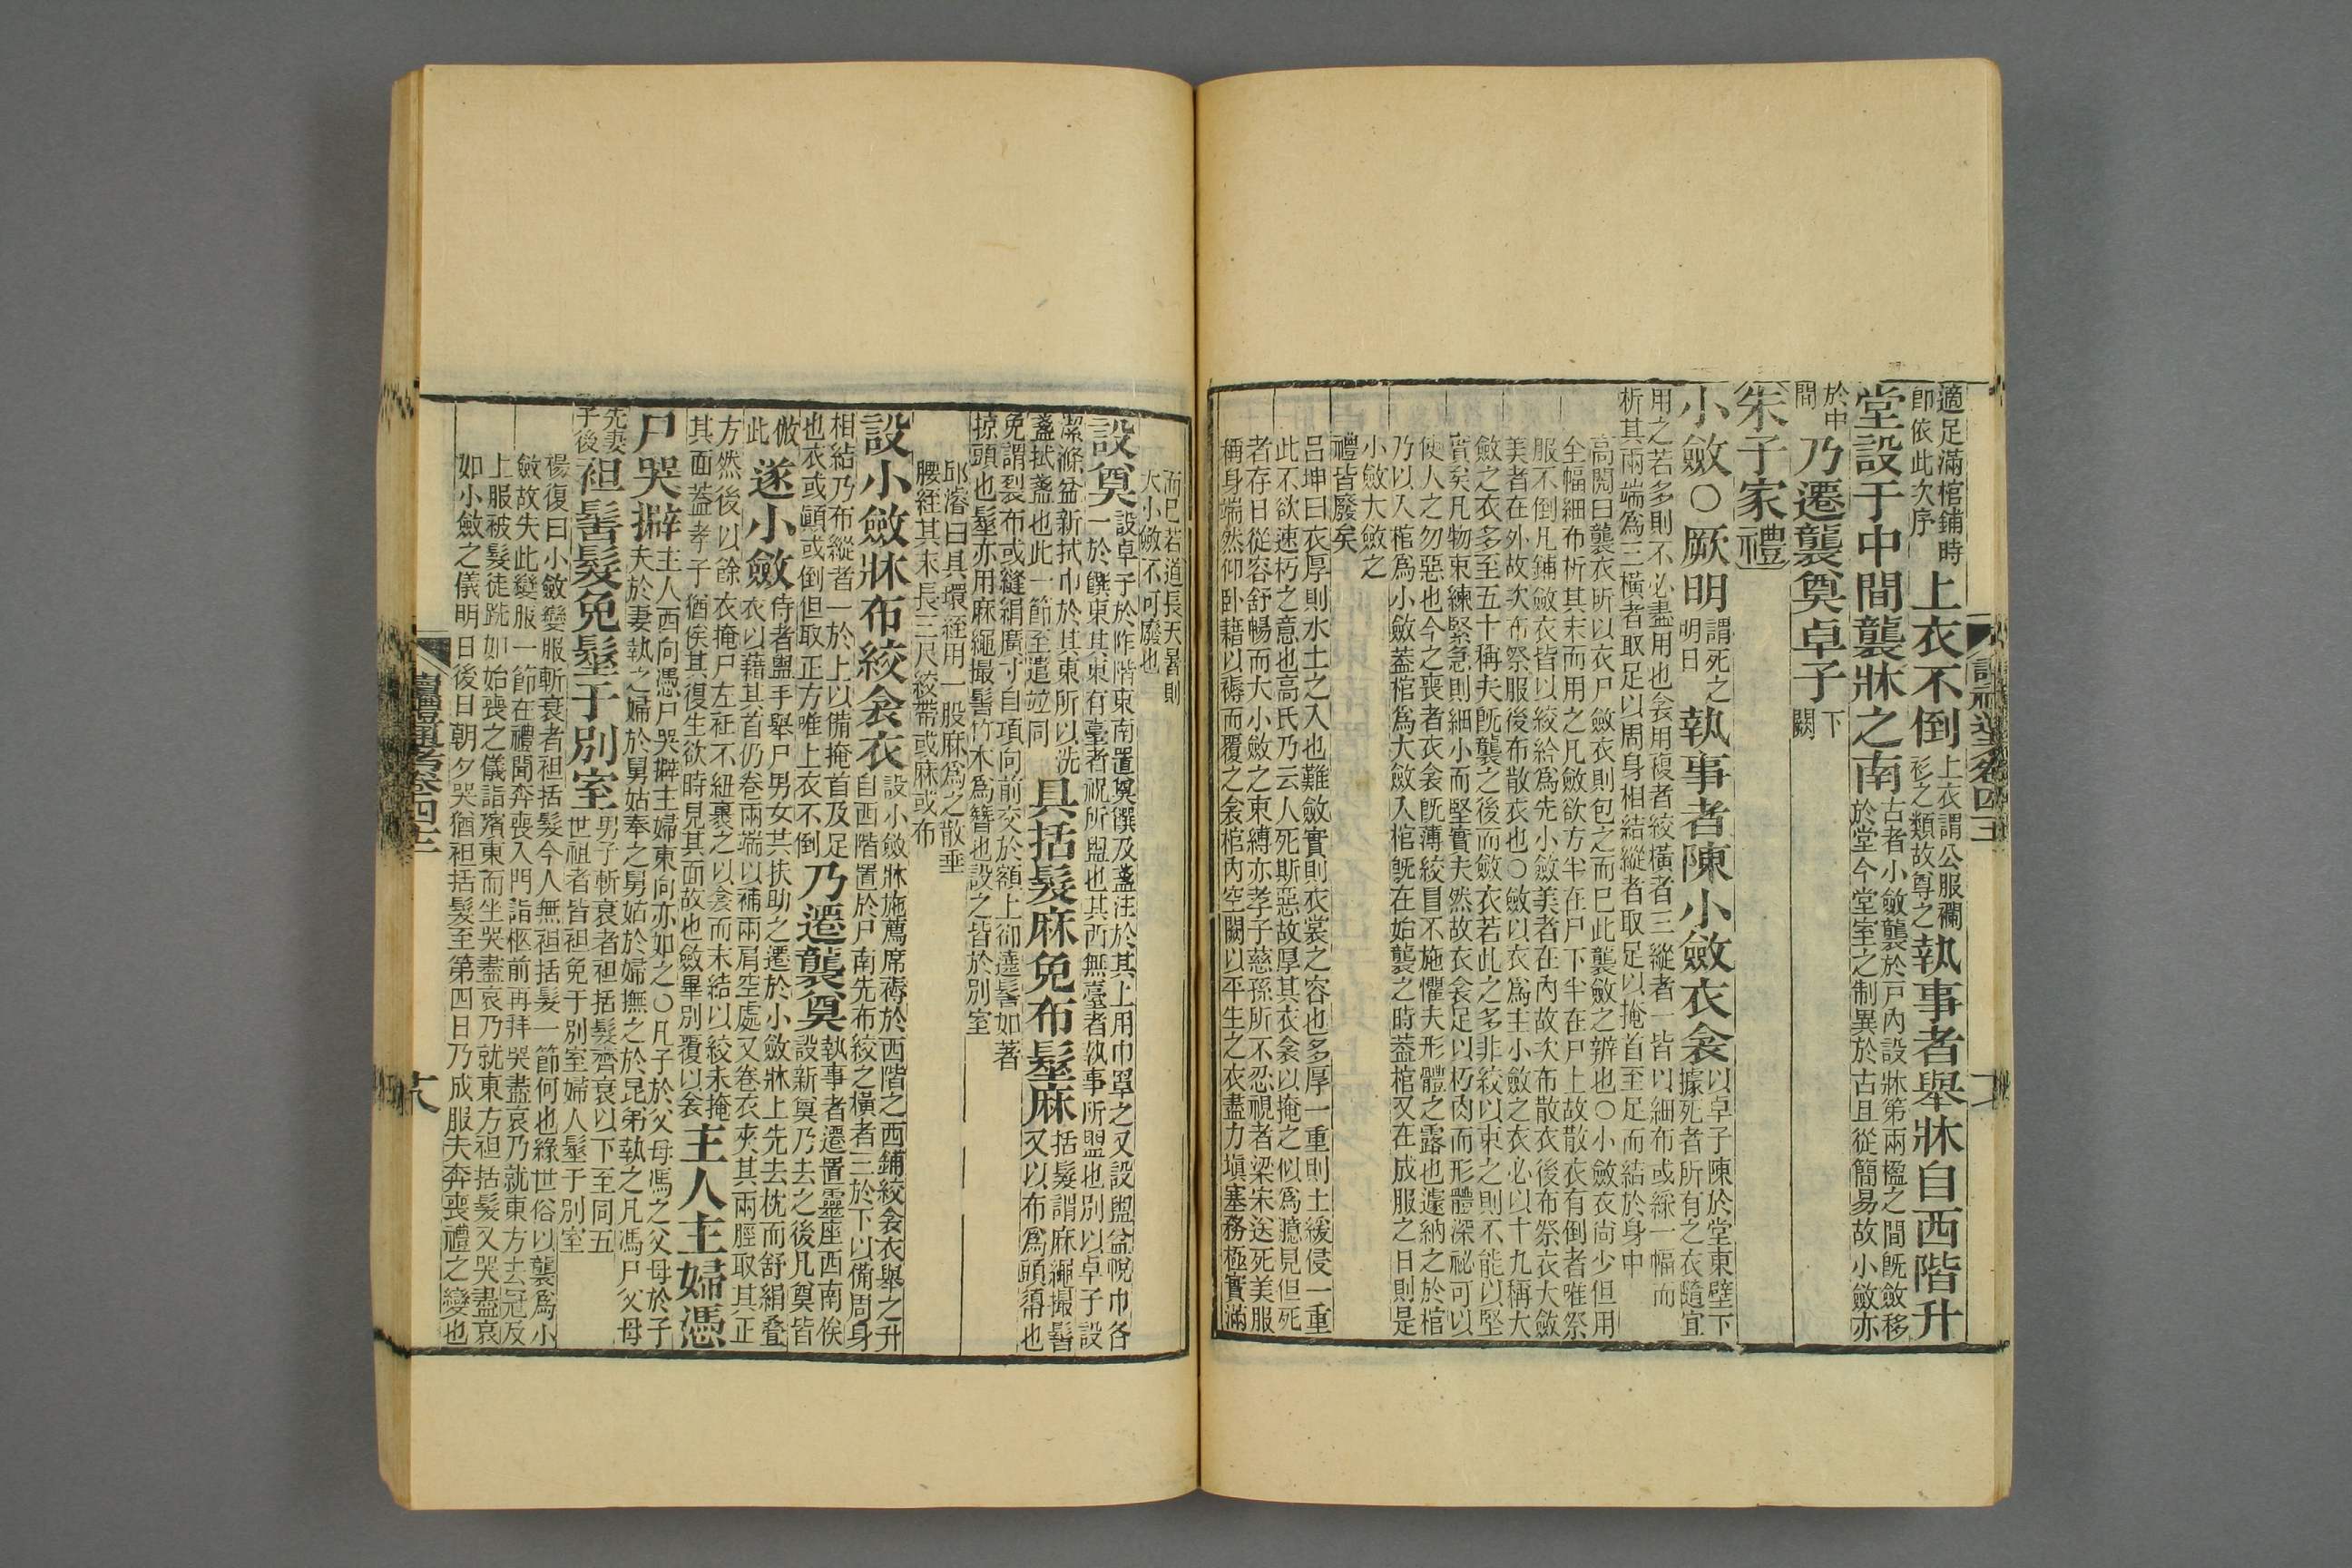 適足滿棺鋪時
卽依此次序
上衣不倒
上衣謂公服襴
衫之類故尊之
執事者舉牀自西階升
堂設于中間襲牀之南
古者小斂襲於戸內設牀第兩楹之間旣斂移
於堂今堂室之制異於古且從簡易故小斂亦
於中
間
乃遷襲奠卓子
下
闕
朱子家禮
小斂○厥明
謂死之
明日
執事者陳小斂衣衾
以卓子陳於堂東壁下
據死者所有之衣隨宜
用之若多則不必盡用也衾用複者絞橫者三縱者一皆以細布或綵一幅而
析其兩端爲三橫者取足以周身相結縱者取足以掩首至足而結於身中
高閌曰襲衣所以衣尸斂衣則包之而巳此襲斂之辨也○小斂衣尚少但用
全幅細布析其末而用之凡斂欲方半在尸下半在尸上故散衣有倒者唯祭
服不倒凡鋪斂衣皆以絞紟爲先小斂美者在內故次布散衣後布祭衣大斂
美者在外故次布祭服後布散衣也○斂以衣爲主小斂之衣必以十九稱大
斂之衣多至五十稱夫旣襲之後而斂衣若此之多非絞以束之則不能以堅
實矣凡物束練緊急則細小而堅實夫然故衣衾足以朽肉而形體深祕可以
使人之勿惡也今之喪者衣衾旣薄絞冒不施懼夫形體之露也遽納之於棺
乃以入棺爲小斂蓋棺爲大斂入棺旣在始襲之時蓋棺又在成服之日則是
小斂大斂之
禮皆廢矣
呂坤曰衣厚則水土之入也難斂實則衣裳之容也多厚一重則土緩侵一重
此不欲速朽之意也高氏乃云人死斯惡故厚其衣衾以掩之似爲臆見但死
者存日從容舒暢而大小斂之束縛亦孝子慈孫所不忍視者梁宋送死美服
稱身端然仰卧藉以褥而覆之衾棺內空闕以平生之衣盡力塡塞務極實滿
而巳若道長天暑則
大小斂不可廢也
設奠
設卓子於阼階東南置奠饌及盞注於其上用巾罩之又設盥盆帨巾各
一於饌東其東有臺者祝所盥也其西無臺者執事所盥也別以卓子設
潔滌盆新拭巾於其東所以洗
盞拭盞也此一節至遣竝同
具括髮麻免布髽麻
括髮謂麻繩撮髻
又以布爲頭𢄼也
免謂裂布或縫絹廣寸自項向前交於額上卻遶髻如著
掠頭也髽亦用麻繩撮髻竹木爲簪也設之皆於別室
邱濬曰具環絰用一股麻爲之散垂
腰絰其末長三尺絞帶或麻或布
設小斂牀布絞衾衣
設小斂牀施薦席褥於西階之西鋪絞衾衣舉之升
自西階置於尸南先布絞之橫者三於下以備周身
相結乃布縱者一於上以備掩首及足
也衣或顚或倒但取正方唯上衣不倒
乃遷襲奠
執事者遷置靈座西南俟
設新奠乃去之後凡奠皆
倣
此
遂小斂
侍者盥手舉尸男女共扶助之遷於小斂牀上先去枕而舒絹疊
衣以藉其首仍卷兩端以補兩肩空處又卷衣夾其兩脛取其正
方然後以餘衣掩尸左衽不紐裹之以衾而未結以絞未掩
其面蓋孝子猶俟其復生欲時見其面故也斂畢別覆以衾
主人主婦憑
尸哭擗
主人西向憑尸哭擗主婦東向亦如之○凡子於父母馮之父母於子
夫於妻執之婦於舅姑奉之舅姑於婦撫之於昆弟執之凡馮尸父母
先妻
子後
袒髻髮免髽于別室
男子斬衰者袒括髮齊衰以下至同五
世祖者皆袒免于別室婦人髽于別室
楊復曰小斂變服斬衰者袒括髮今人無袒括髮一節何也緣世俗以襲爲小
斂故失此變服一節在禮聞奔喪入門詣柩前再拜哭盡哀乃就東方去冠及
上服被髮徒跣如始喪之儀詣殯東而坐哭盡哀乃就東方袒括髮又哭盡哀
如小斂之儀明日後日朝夕哭猶袒括髮至第四日乃成服夫奔喪禮之變也
讀禮通考卷四十三